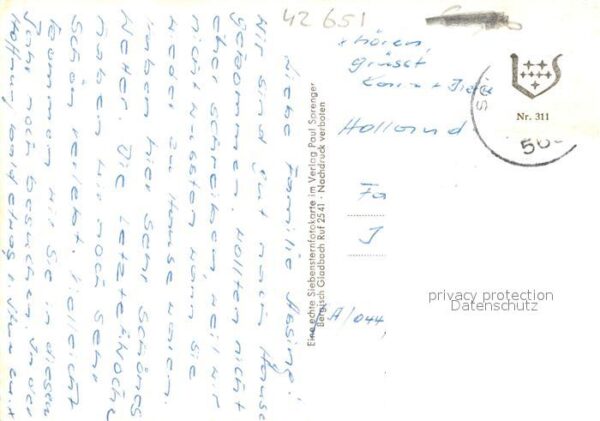 42651
Liebe Familie
Wir sind gut nach Hause
gekommen, wollten nicht
eher schreiben, weil wir
nicht wussten wann Sie
wieder zu Hause waren.
haben hier sehr schönes
Wetter. Die letzte Woche
haben wir noch sehr
schön verlebt. Vielleicht
kommen wir Sie in diesem
Jahr noch besuchen. In der
Hoffnung, bald etwas v. Ihnen zu
hören,
grüsst
Holland
Eine echte Siebensternfotokarte im Verlag Paul Sprenger
Bergisch Gladbach Ruf 2541 · Nachdruck verboten
LS
Nr. 311
Fa
J
A/044,
privacy protection
Datenschutz